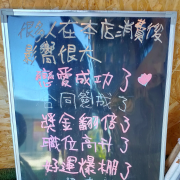 很多人在本店消費後
影響很大
戀愛成功了
合同簽成了
獎金翻倍了
職位高升了
好運爆棚了